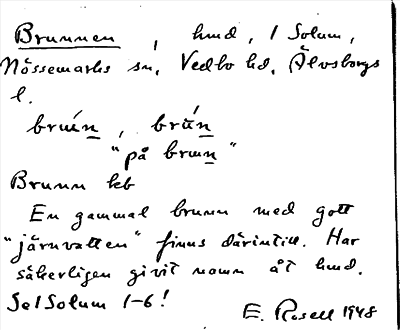 Brunnen, hmd, 1 Solum,
Nössemarks sn, Vedbo hd, Älvsborgs
l.
bruǽn, brǘn
"på brɯn"
Brunn kb
En gammal brunn med gott
"järnvatten" finns därintill. Har
säkerligen givit namn åt hmd.
Se 1 Solum 1-6!
E. Rosell 1948